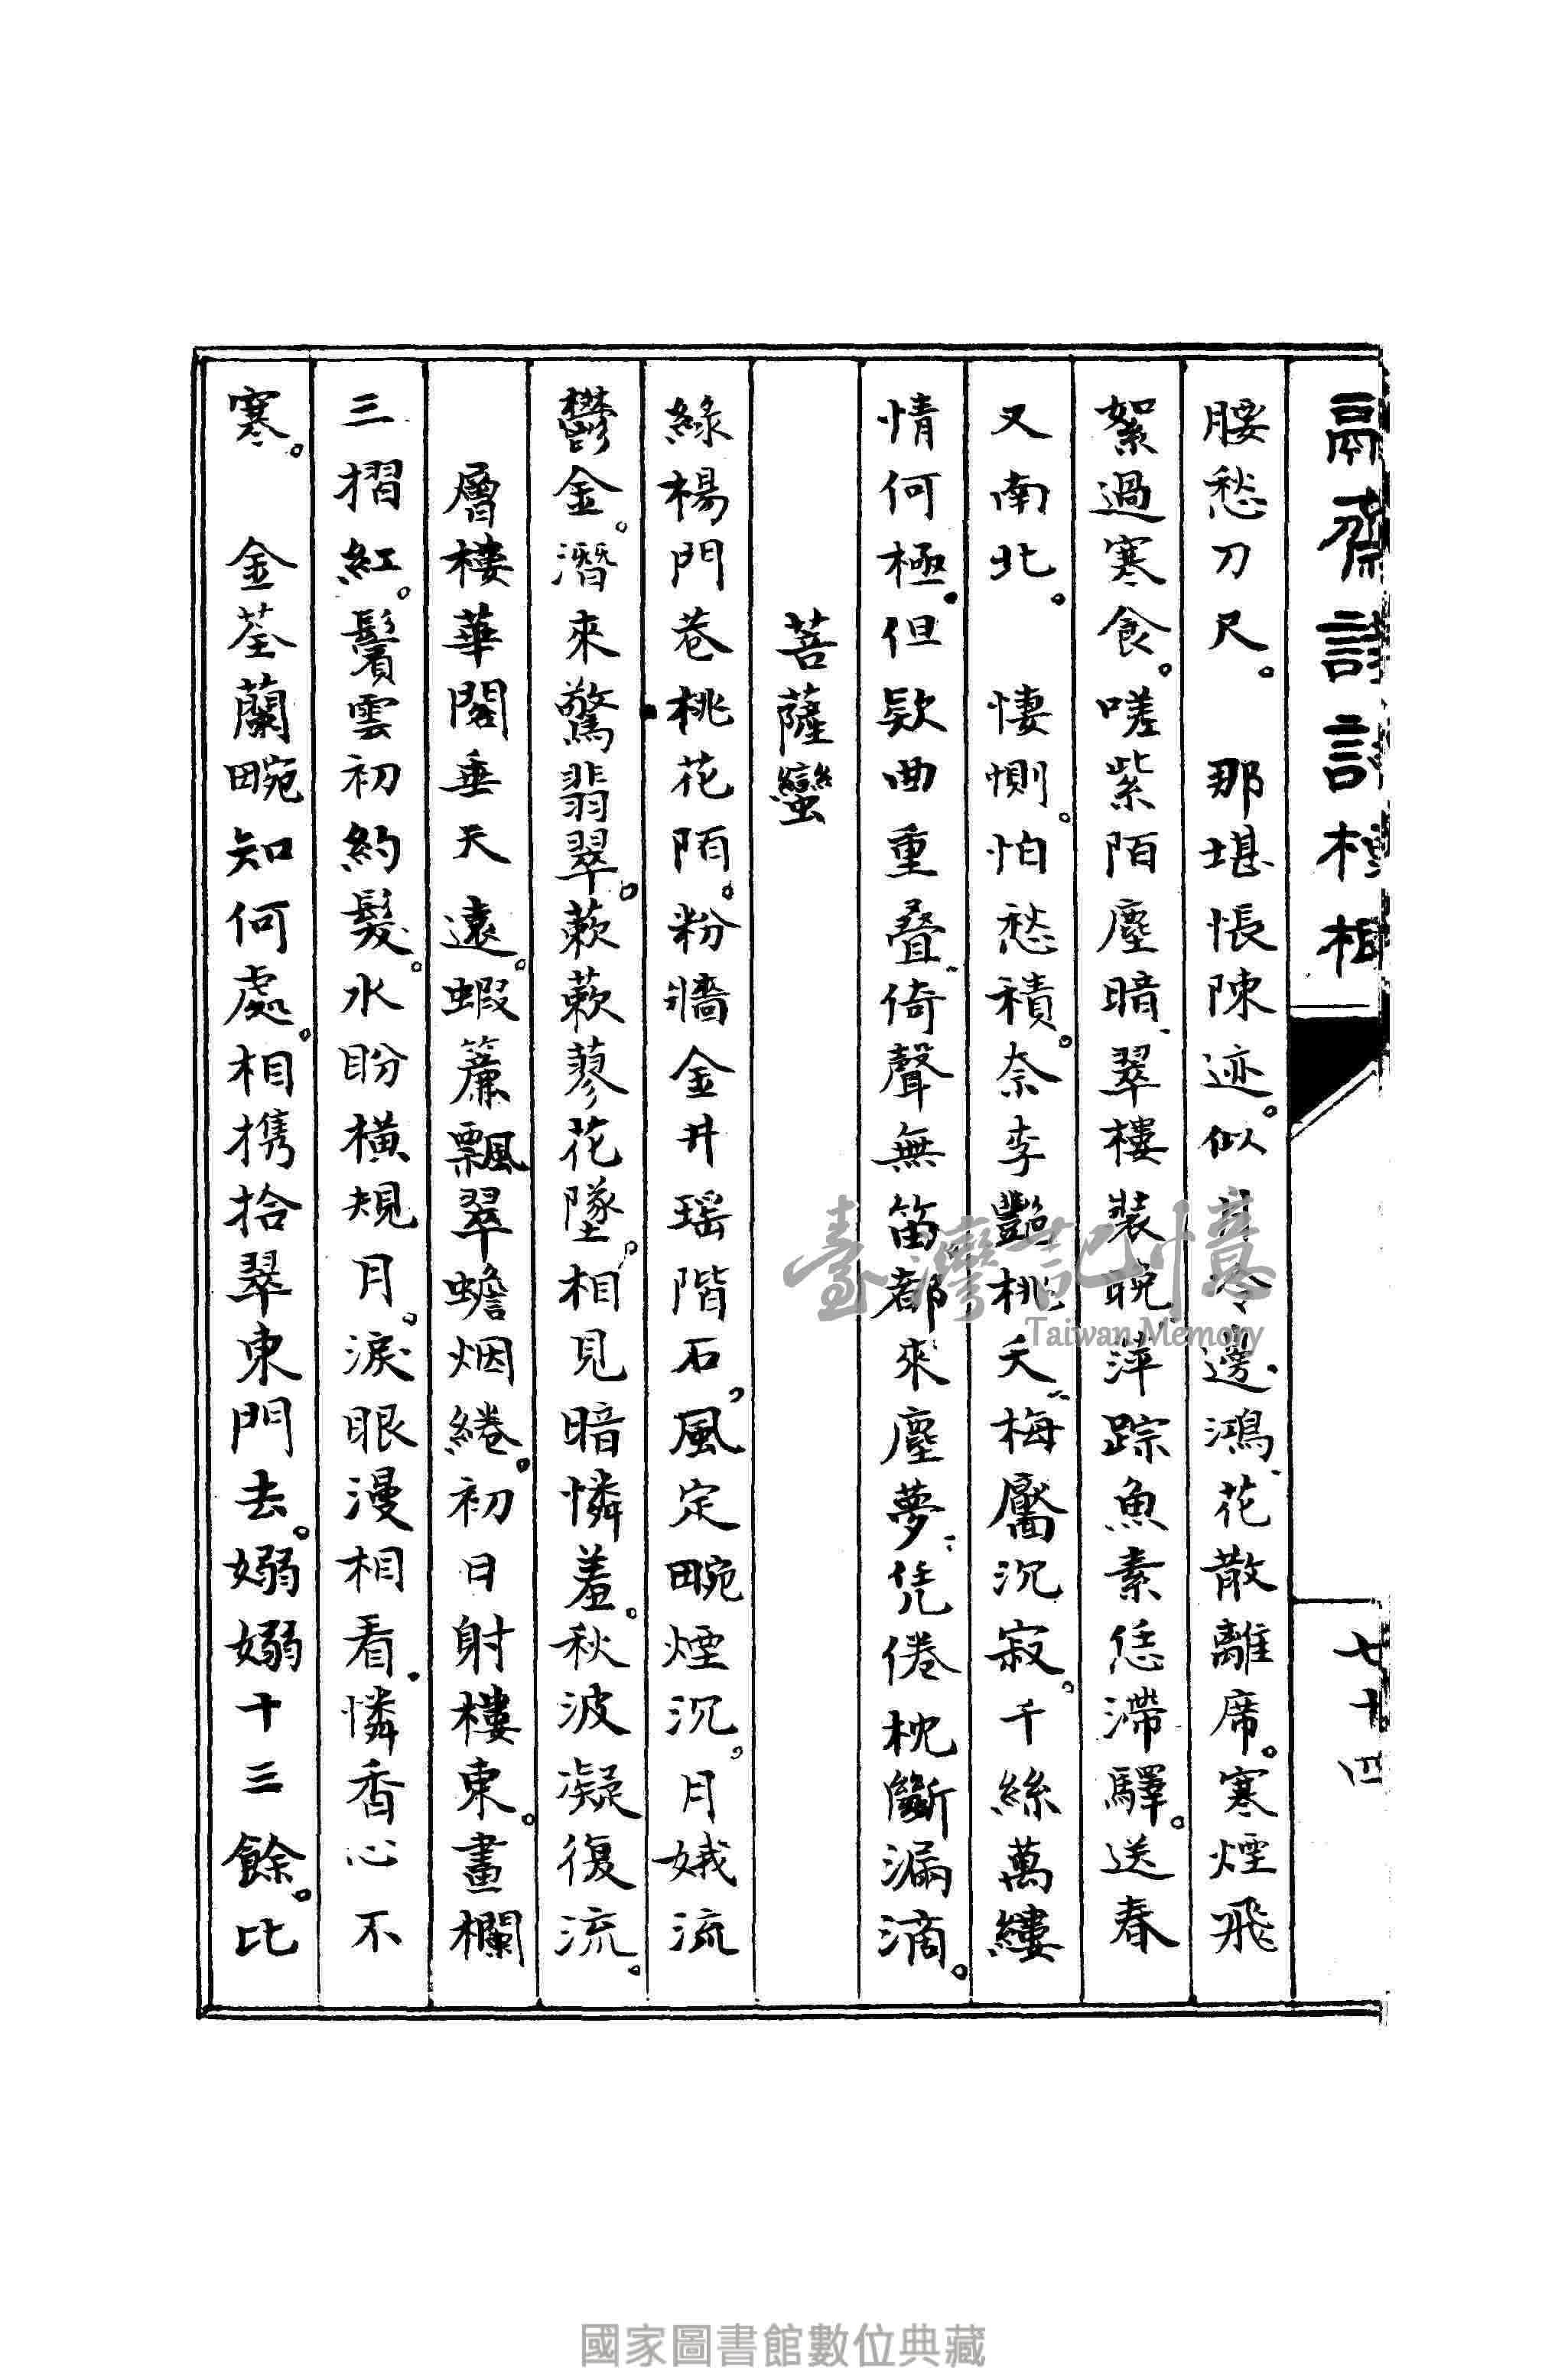 鬲齋詩詞
七十四
腰愁刀尺。　那堪悵陳迹。似井冷邊鴻、花散離席。寒煙飛
絮過寒食。嗟紫陌塵暗、翠樓裝晚、萍踪魚素恁滯驛。送春
又南北。　悽惻。怕愁積。奈李豔桃夭、梅靨沉寂。千絲萬縷
情何極。但欵曲重疊、倚聲無笛都來塵夢、凭倦枕斷漏滴。
菩薩蠻
綠楊門巷桃花陌。粉牆金井瑶階石，風定畹煙沉。月娥流
鬱金。潛來驚翡翠。蔌蔌蓼花墜。相見暗憐羞。秋波凝復流。
層樓華閣垂天遠。蝦簾飄翠蟾烟綣。初日射樓東。畫欄
三摺紅。鬢雲初約髮。水盼橫規月。淚眼漫相看。憐香心不
寒。　金荃蘭畹知何處。相携拾翠東門去。嫋嫋十三餘。比
臺灣記憶
Taiwan Memory
國家圖書館數位典藏